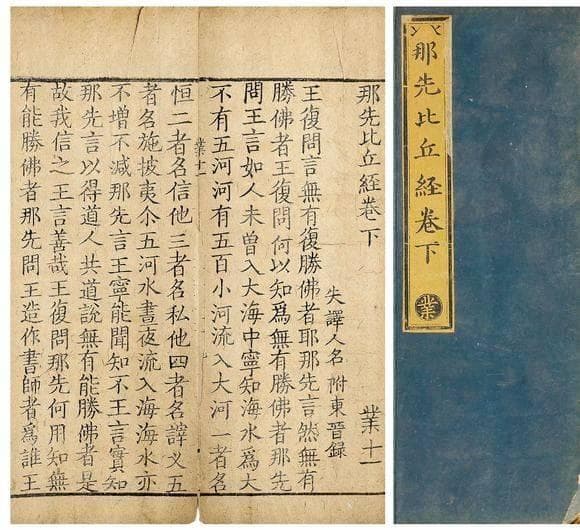 那先比丘經卷下
業
那先比丘經卷下 業十一
失譯人名附東晉錄
王復問言無有復勝佛者耶那先言然無有
勝佛者王復問何以知爲無有勝佛者那先
問王言如人未曾入大海中寧知海水爲大
不有五河河有五百小河流入大河一者名
業十一
恒二者名信他三者名私他四者名譯义五
者名施披夷尒五河水晝夜流入海海水亦
不增不減那先言王寧能聞知不王言實知
那先言以得道人共道說無有能勝佛者是
故我信之王言善哉王復問那先何用知無
有能勝佛者那先問王造作書師者爲誰王